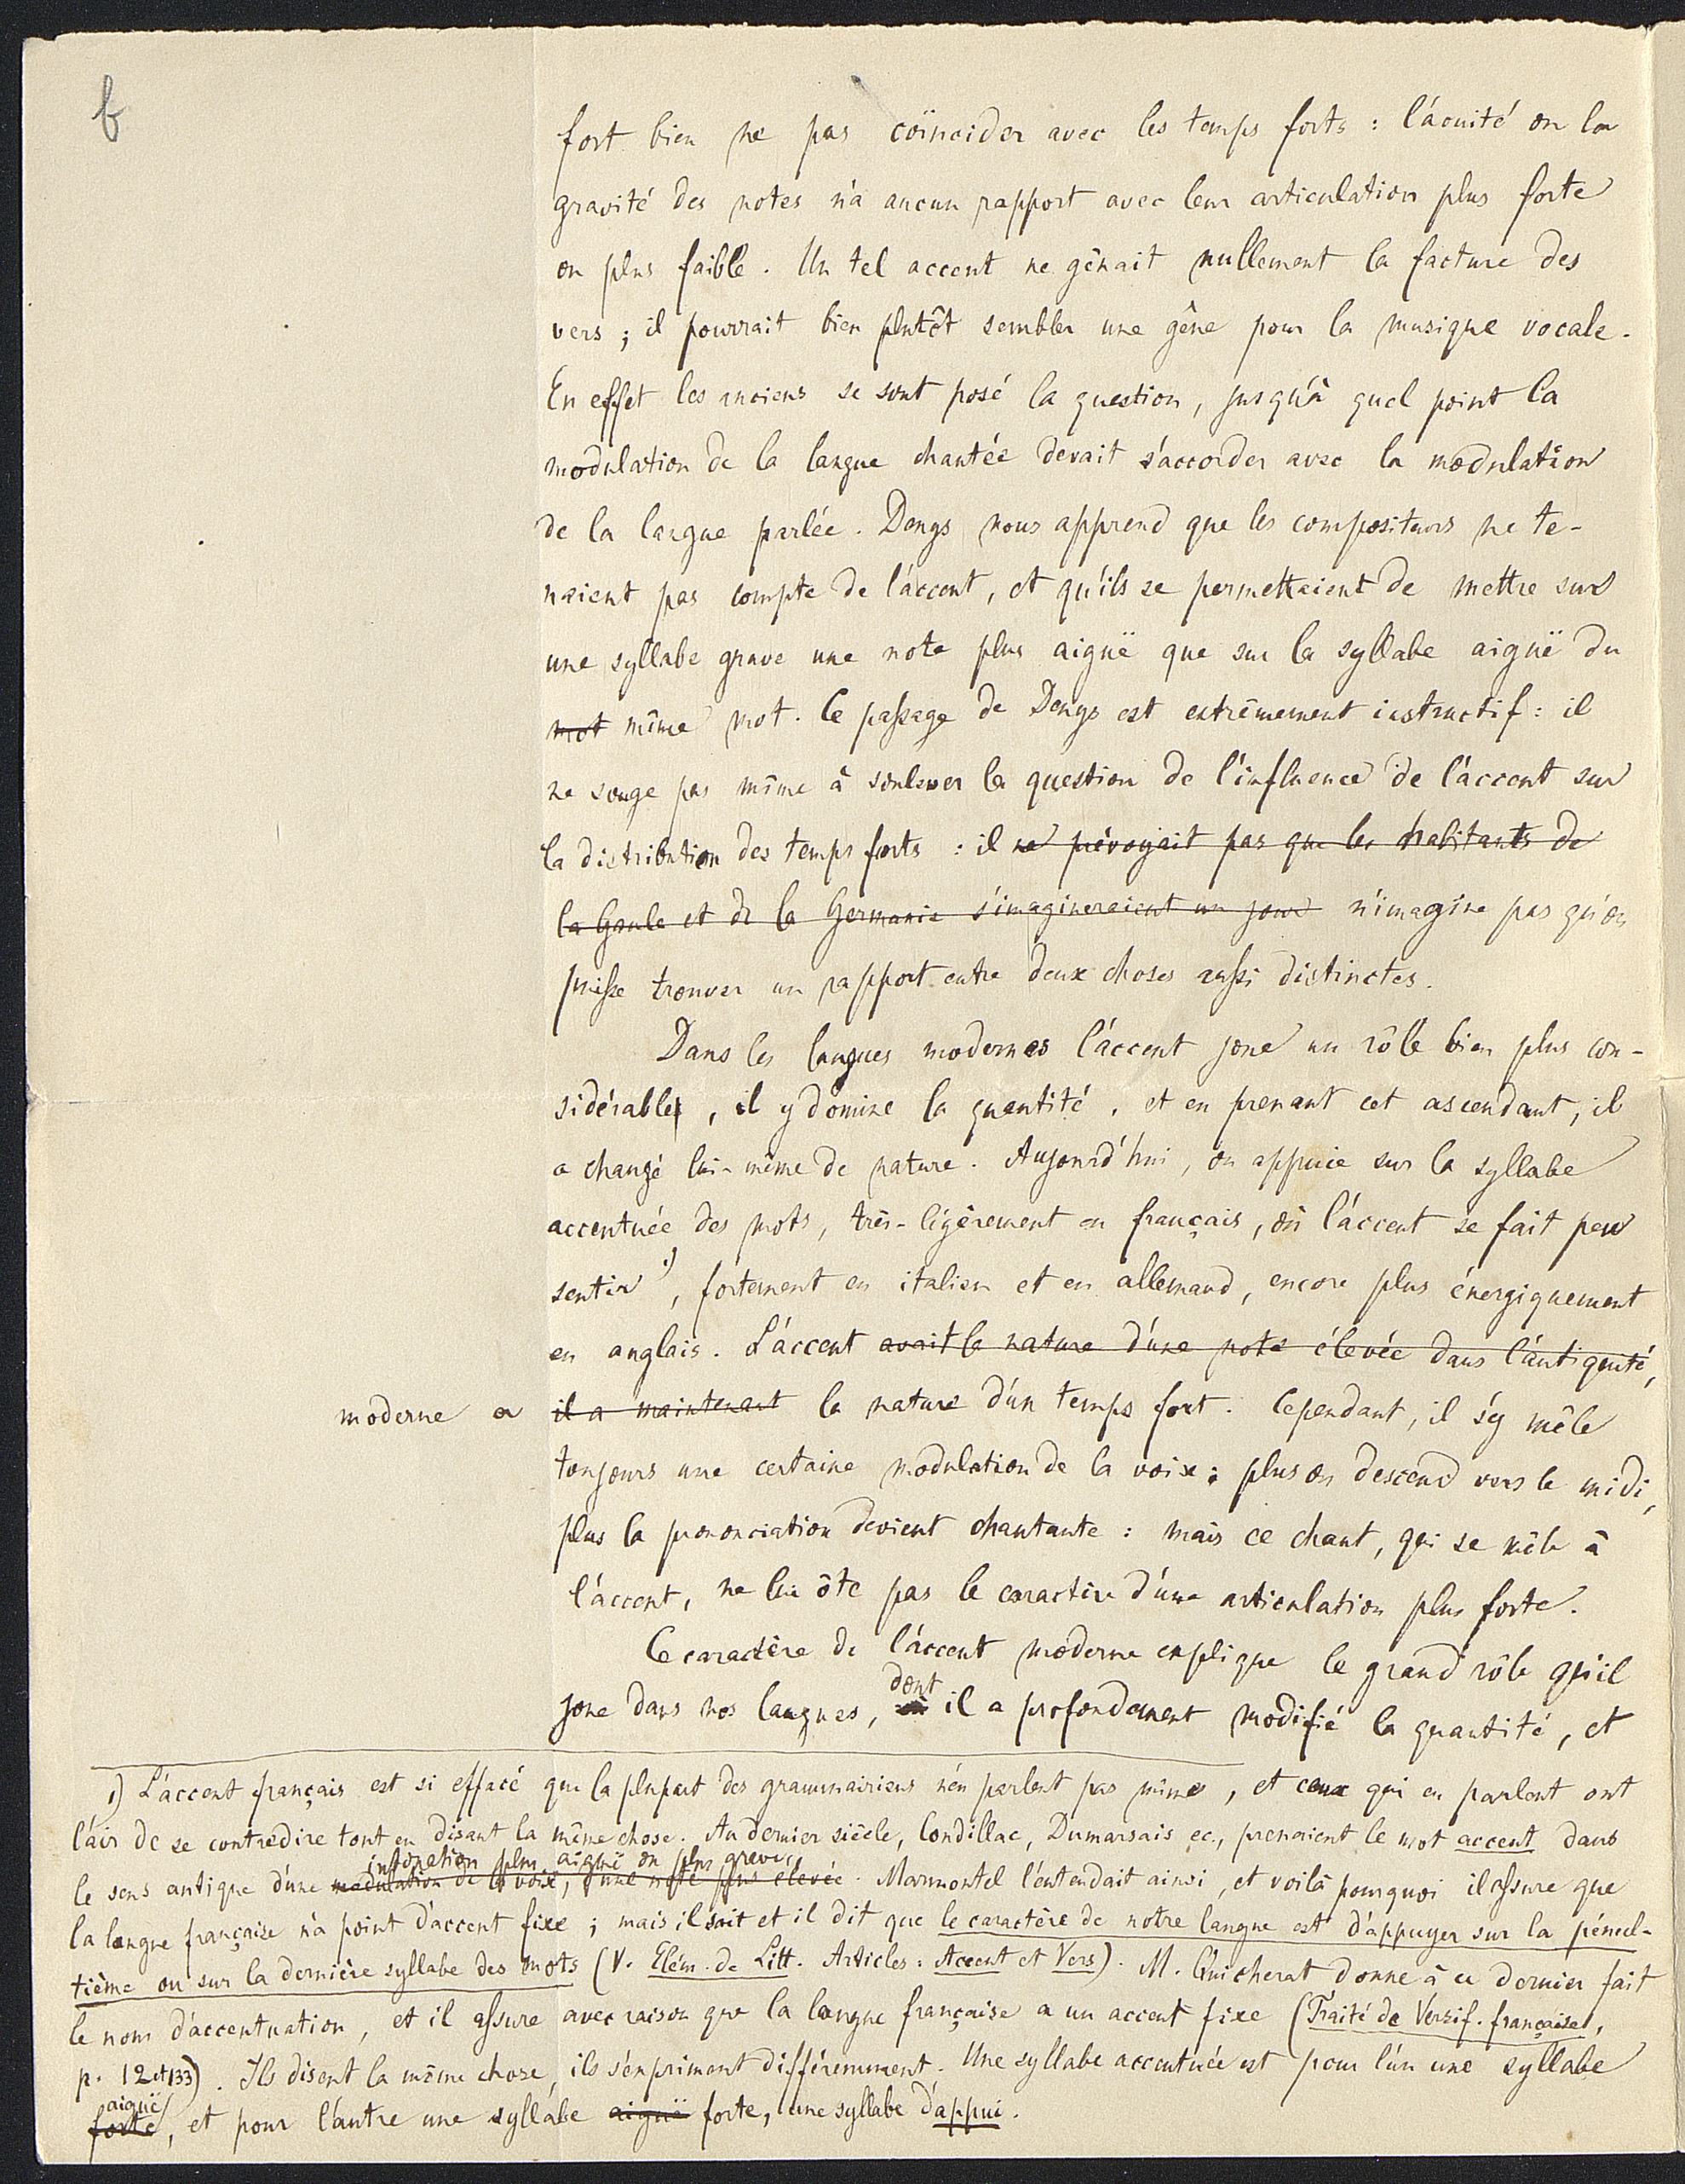 b
fort bien ne pas coïncider avec les temps forts : l'acuité ou la
gravité des notes n'a aucun rapport avec leur articulation plus forte
ou plus faible. Un tel accent ne gênait nullement la facture des
vers ; il pourrait bien plutôt sembler une gêne pour la musique vocale.
En effet les anciens se sont posé la question, jusqu'à quel point la
modulation de la langue chantée devait s'accorder avec la modulation
de la langue parlée. Denys nous apprend que les compositeurs ne te-
naient pas compte de l'accent, et qu'ils se permettaient de mettre sur
une syllabe grave une note plus aiguë que sur la syllabe aiguë du
mot même mot. Ce passage de Denys est extrêmement instructif : il
ne songe pas même à soulever la question de l'influence de l'accent sur
la distribution des temps forts : il ne prévoyait pas que les habitants de
la Gaule et de la Germanie s'imagineraient un jour n'imagine pas qu'on
puisse trouver un rapport entre deux choses aussi distinctes.
Dans les langues modernes l'accent joue un rôle bien plus con-
sidérable, il y domine la quantité, et en prenant cet ascendant, il
a changé lui-même de nature. Aujourd'hui, on appuie sur la syllabe
accentuée des mots, très-légèrement en français, où l'accent se fait peu
sentir 1), fortement en italien et en allemand, encore plus énergiquement
en anglais. L'accent avait la nature d'une note élevée dans l'antiquité,
moderne a il a maintenant la nature d'un temps fort. Cependant, il s'y mêle
toujours une certaine modulation de la voix : plus on descend vers le midi,
plus la prononciation devient chantante : mais ce chant, qui se mêle à
l'accent, ne lui ôte pas le caractère d'une articulation plus forte.
Ce caractère de l'accent moderne explique le grand rôle qu'il
dont
joue dans nos langues, où il a profondément modifié la quantité, et
1) L'accent français est si effacé que la plupart des grammairiens n'en parlent pas même, et ceux qui en parlent ont
l'air de se contredire tout en disant la même chose. Au dernier siècle, Condillac, Dumarsais ec., prenaient le mot accent dans
intonation plus aiguë ou plus grave
le sens antique d'une modulation de la voix, d'une note plus élevée. Marmontel l'entendait ainsi, et voilà pourquoi il assure que
la langue française n'a point d'accent fixe ; mais il sait et il dit que le caractère de notre langue est d'appuyer sur la pénul-
tième ou sur la dernière syllabe des mots (V. Elém. de Litt. Articles : Accent et Vers). M. Quicherat donne à ce dernier fait
le nom d'accentuation, et il assure avec raison que la langue française a un accent fixe (Traité de Versif. française,
p. 12 et 133). Ils disent la même chose, ils s'expriment différemment. Une syllabe accentuée est pour l'un une syllabe
aiguë
forte, et pour l'autre une syllabe aiguë forte, une syllabe d'appui.